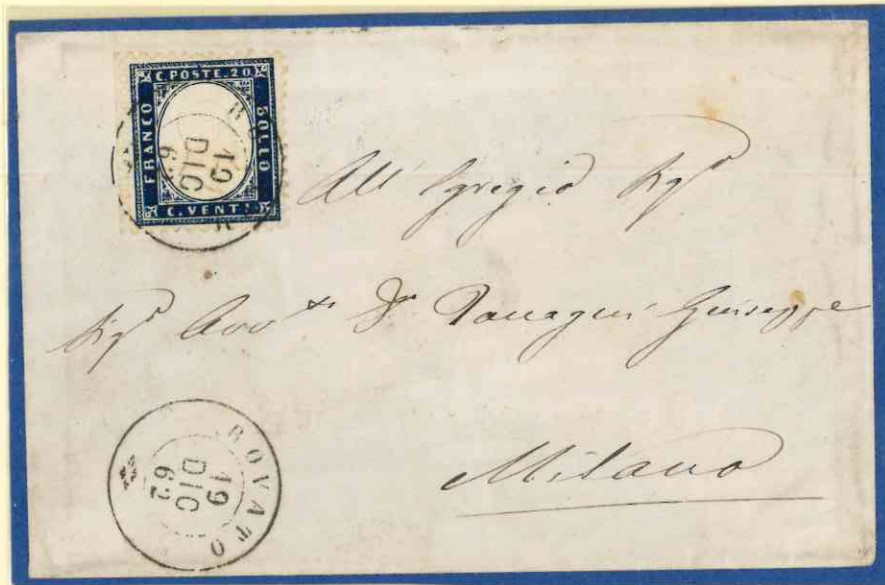 C. POSTE. 20
FRANCO
BOLLO
C. VENTI
19
DIC
62
All' Egregio Sigr
Sigr Avvto Dr Giuseppe
Milano
ROVATO
19
DIC
62